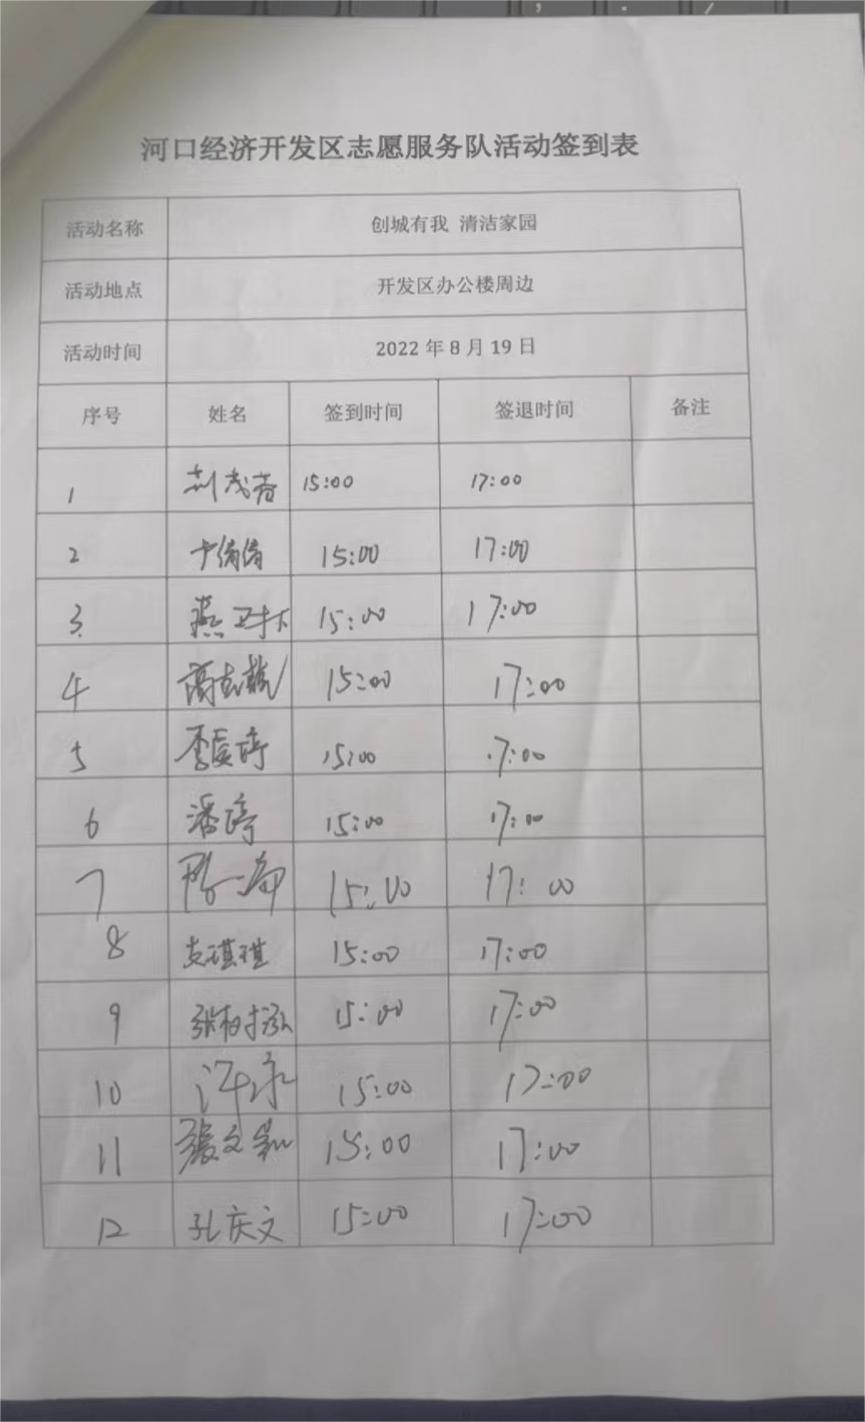 河口经济开发区志愿服务队活动签到表
活动名称 创城有我 清洁家园
活动地点 开发区办公楼周边
活动时间 2022年8月19日
序号 姓名 签到时间 签退时间 备注
1 15:00 17:00
2 15:00 17:00
3 15:00 17:00
4 15:00 17:00
5 15:00 17:00
6 潘婷 15:00 17:00
7 15:00 17:00
8 15:00 17:00
9 15:00 17:00
10 15:00 17:00
11 15:00 17:00
12 孔庆文 15:00 17:00